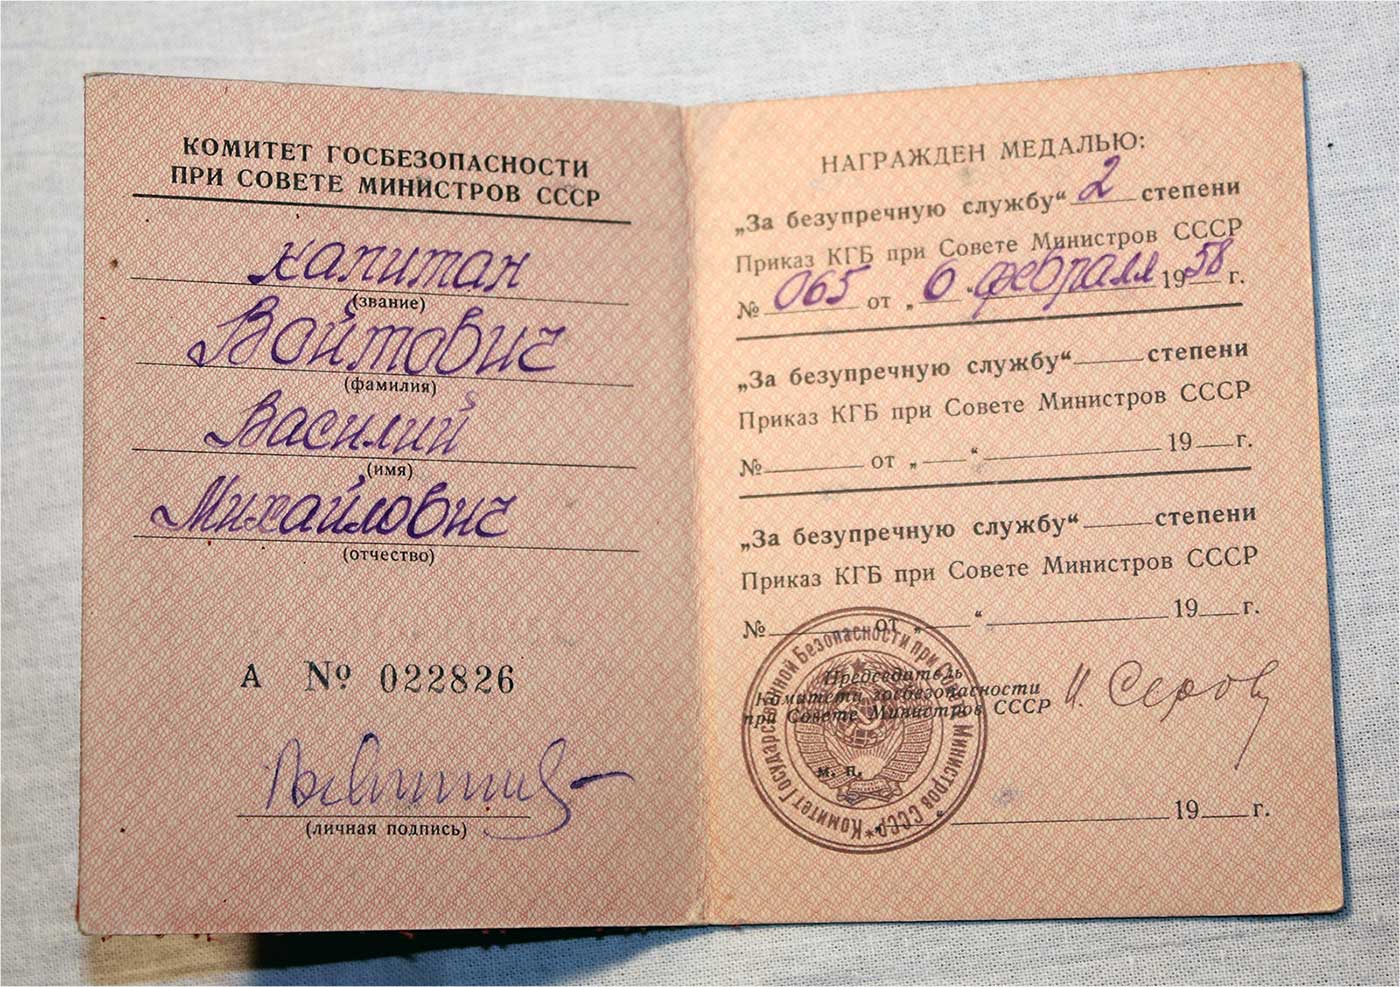 КОМИТЕТ ГОСБЕЗОПАСНОСТИ
ПРИ СОВЕТЕ МИНИСТРОВ СССР
капитан
(звание)
Войтович
(фамилия)
Василий
(имя)
Михайлович
(отчество)
А № 022826
(личная подпись)
НАГРАЖДЕН МЕДАЛЬЮ:
„За безупречную службу“ 2 степени
Приказ КГБ при Совете Министров СССР
№ 065 от „ 6 “ февраля 1958 г.
„За безупречную службу“ степени
Приказ КГБ при Совете Министров СССР
№ от „ “ 19 г.
„За безупречную службу“ степени
Приказ КГБ при Совете Министров СССР
№ от „ “ 19 г.
Председатель
Комитета госбезопасности
при Совете Министров СССР И. Серов
м. п.
„ “ 19 г.
Комитет Государственной Безопасности при Совете Министров СССР